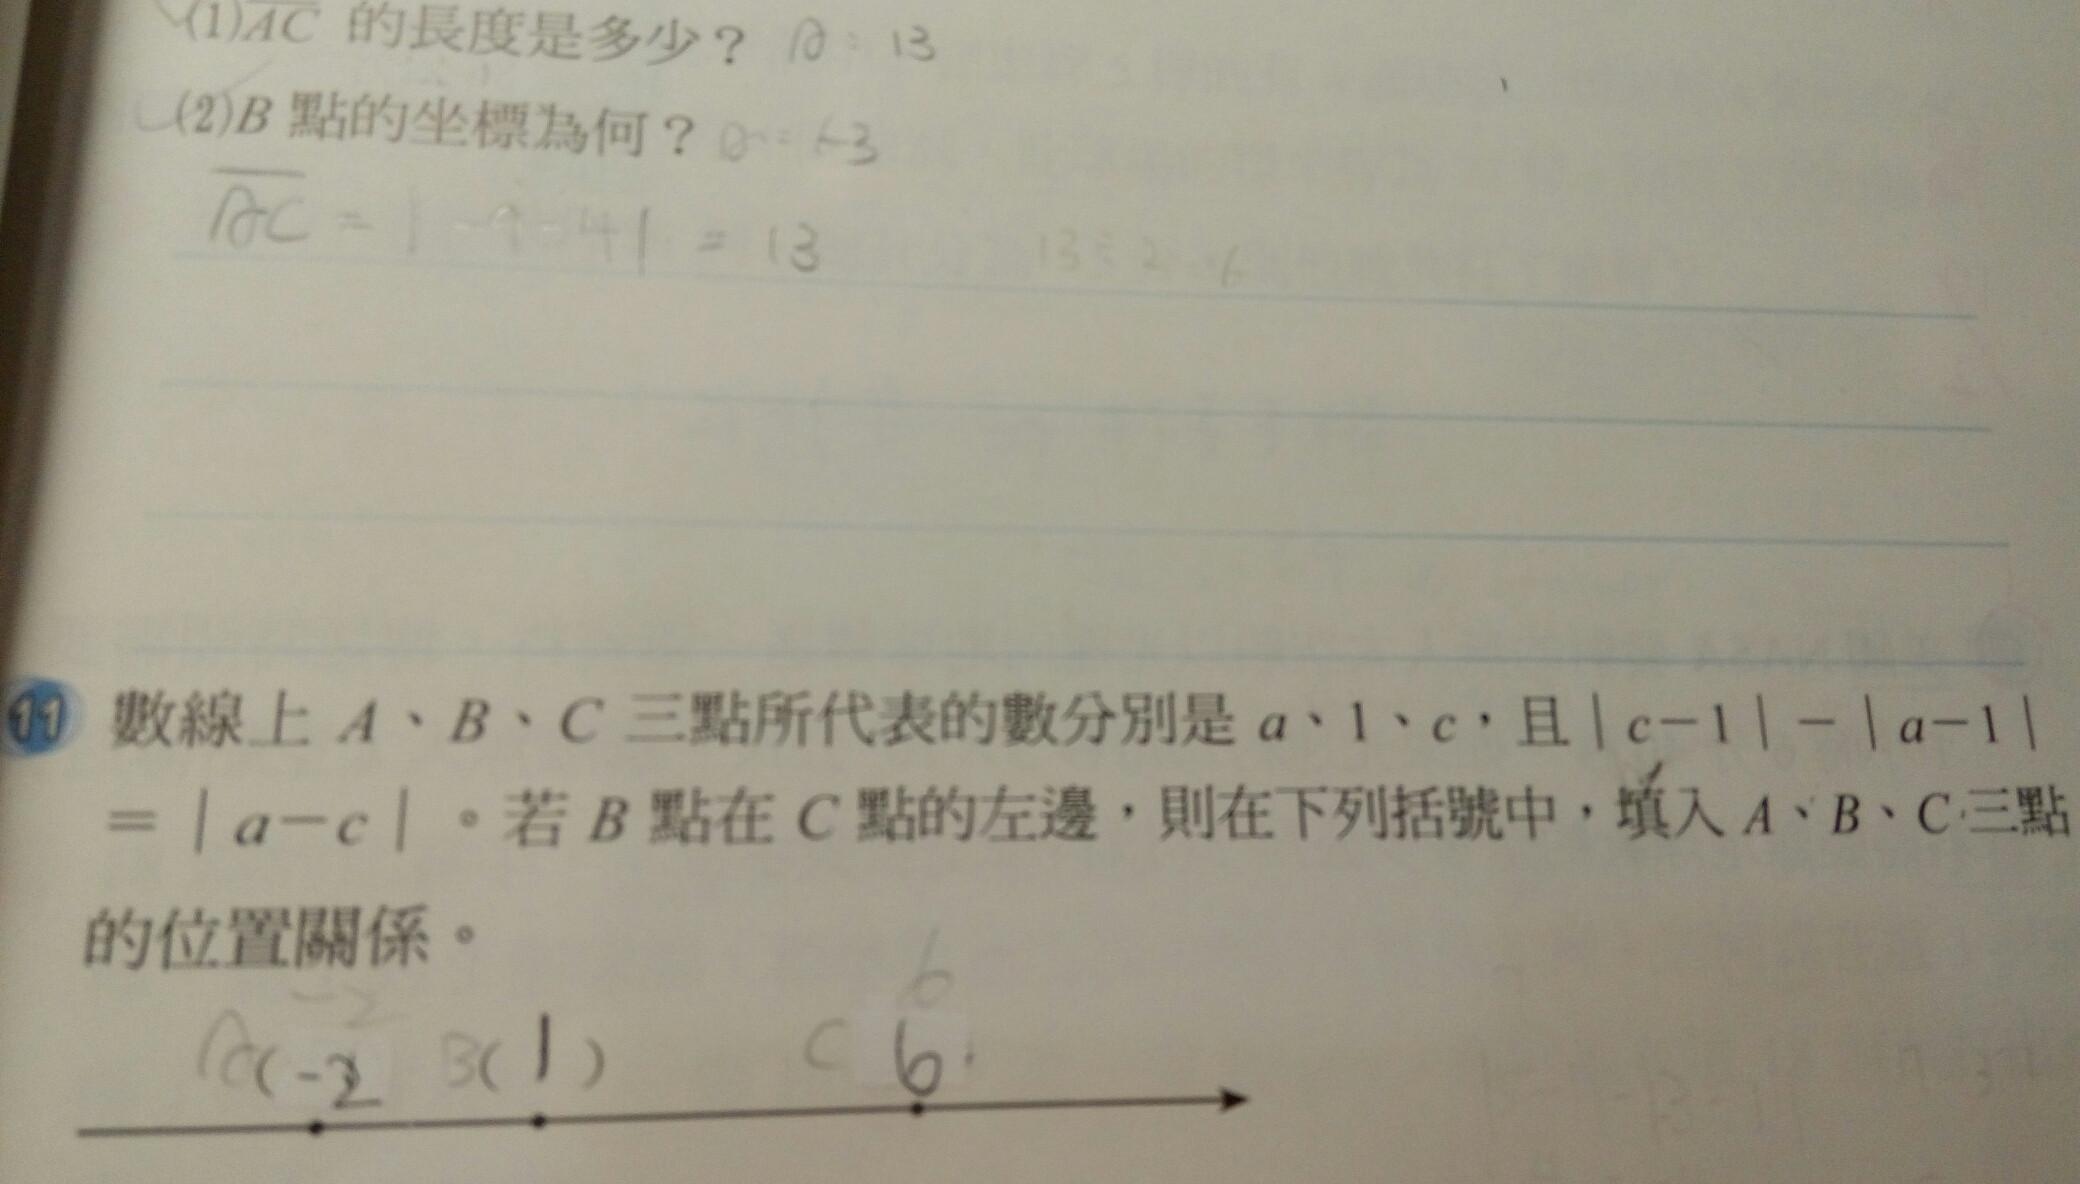 (1)AC 的長度是多少？ A：13
(2)B 點的坐標為何？ A：-3
AC = |-9-4| = 13 13÷2
11 數線上 A、B、C 三點所代表的數分別是 a、1、c，且｜c－1｜－｜a－1｜
＝｜a－c｜。若 B 點在 C 點的左邊，則在下列括號中，填入 A、B、C 三點
的位置關係。
-2 6
A(-2 B(1) C 6